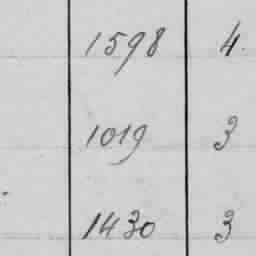 1598 4.
1019 3
1430 3